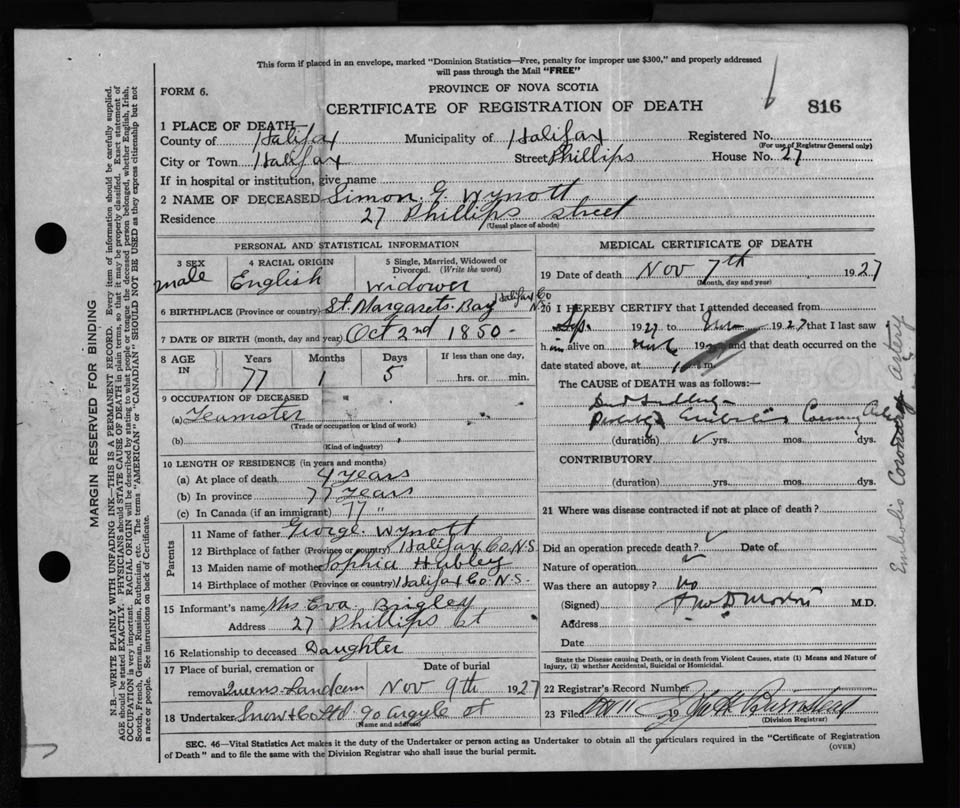 This form if placed in an envelope, marked "Dominion Statistics—Free, penalty for improper use $300," and properly addressed
will pass through the Mail "FREE"
FORM 6.
PROVINCE OF NOVA SCOTIA
CERTIFICATE OF REGISTRATION OF DEATH
816
1 PLACE OF DEATH—
County of Halifax Municipality of Halifax Registered No.
(For use of Registrar General only)
City or Town Halifax Street Phillips House No. 27
If in hospital or institution, give name
2 NAME OF DECEASED Simon G Wynott
Residence 27 Phillips Street
(Usual place of abode)
PERSONAL AND STATISTICAL INFORMATION
3 SEX male
4 RACIAL ORIGIN English
5 Single, Married, Widowed or Divorced. (Write the word) widower
6 BIRTHPLACE (Province or country) St. Margarets Bay Halifax Co N.S.
7 DATE OF BIRTH (month, day and year) Oct 2nd 1850-
8 AGE IN Years 77 Months 1 Days 5 If less than one day, hrs. or min.
9 OCCUPATION OF DECEASED
(a) Teamster
(Trade or occupation or kind of work)
(b)
(Kind of industry)
10 LENGTH OF RESIDENCE (in years and months)
(a) At place of death 4 years
(b) In province 77 years
(c) In Canada (if an immigrant) 77 "
Parents
11 Name of father George Wynott
12 Birthplace of father (Province or country) Halifax Co N.S.
13 Maiden name of mother Sophia Hubley
14 Birthplace of mother (Province or country) Halifax Co N.S.
15 Informant's name Mrs Eva Brigley
Address 27 Phillips St
16 Relationship to deceased Daughter
17 Place of burial, cremation or removal Date of burial
Nov 9th 1927
18 Undertaker Snow & Co Ltd 90 Argyle St
(Name and address)
MEDICAL CERTIFICATE OF DEATH
19 Date of death Nov 7th 1927
(Month, day and year)
20 I HEREBY CERTIFY that I attended deceased from
Sep. 1927 to 1927 that I last saw
him alive on 192 and that death occurred on the
date stated above, at m.
The CAUSE of DEATH was as follows:—
Coronary
(duration) yrs. mos. dys.
CONTRIBUTORY
(duration) yrs. mos. dys.
21 Where was disease contracted if not at place of death?
Did an operation precede death? Date of
Nature of operation
Was there an autopsy? no
(Signed) M.D.
Address
Date
State the Disease causing Death, or in death from Violent Causes, state (1) Means and Nature of
Injury, (2) whether Accidental, Suicidal or Homicidal.
22 Registrar's Record Number
23 Filed Nov 11 19
(Division Registrar)
SEC. 46—Vital Statistics Act makes it the duty of the Undertaker or person acting as Undertaker to obtain all the particulars required in the "Certificate of Registration
of Death" and to file the same with the Division Registrar who shall issue the burial permit.
(OVER)
MARGIN RESERVED FOR BINDING
N.B.—WRITE PLAINLY WITH UNFADING INK—THIS IS A PERMANENT RECORD. Every item of information should be carefully supplied.
AGE should be stated EXACTLY. PHYSICIANS should STATE CAUSE OF DEATH in plain terms, so that it may be properly classified. Exact statement of
OCCUPATION is very important. RACIAL ORIGIN will be described by stating to what people or tongue the deceased person belonged, whether English, Irish,
Scotch, French, German, Russian, Ruthenian, etc. The terms "AMERICAN" or "CANADIAN" SHOULD NOT BE USED as they express citizenship but not
a race or people. See instructions on back of Certificate.
Embolis Coronary artery